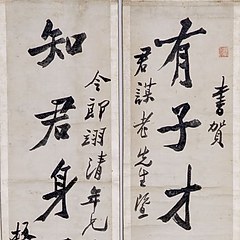 有子才
書賀
君謀老先生暨
知君身
令郎翊清年兄